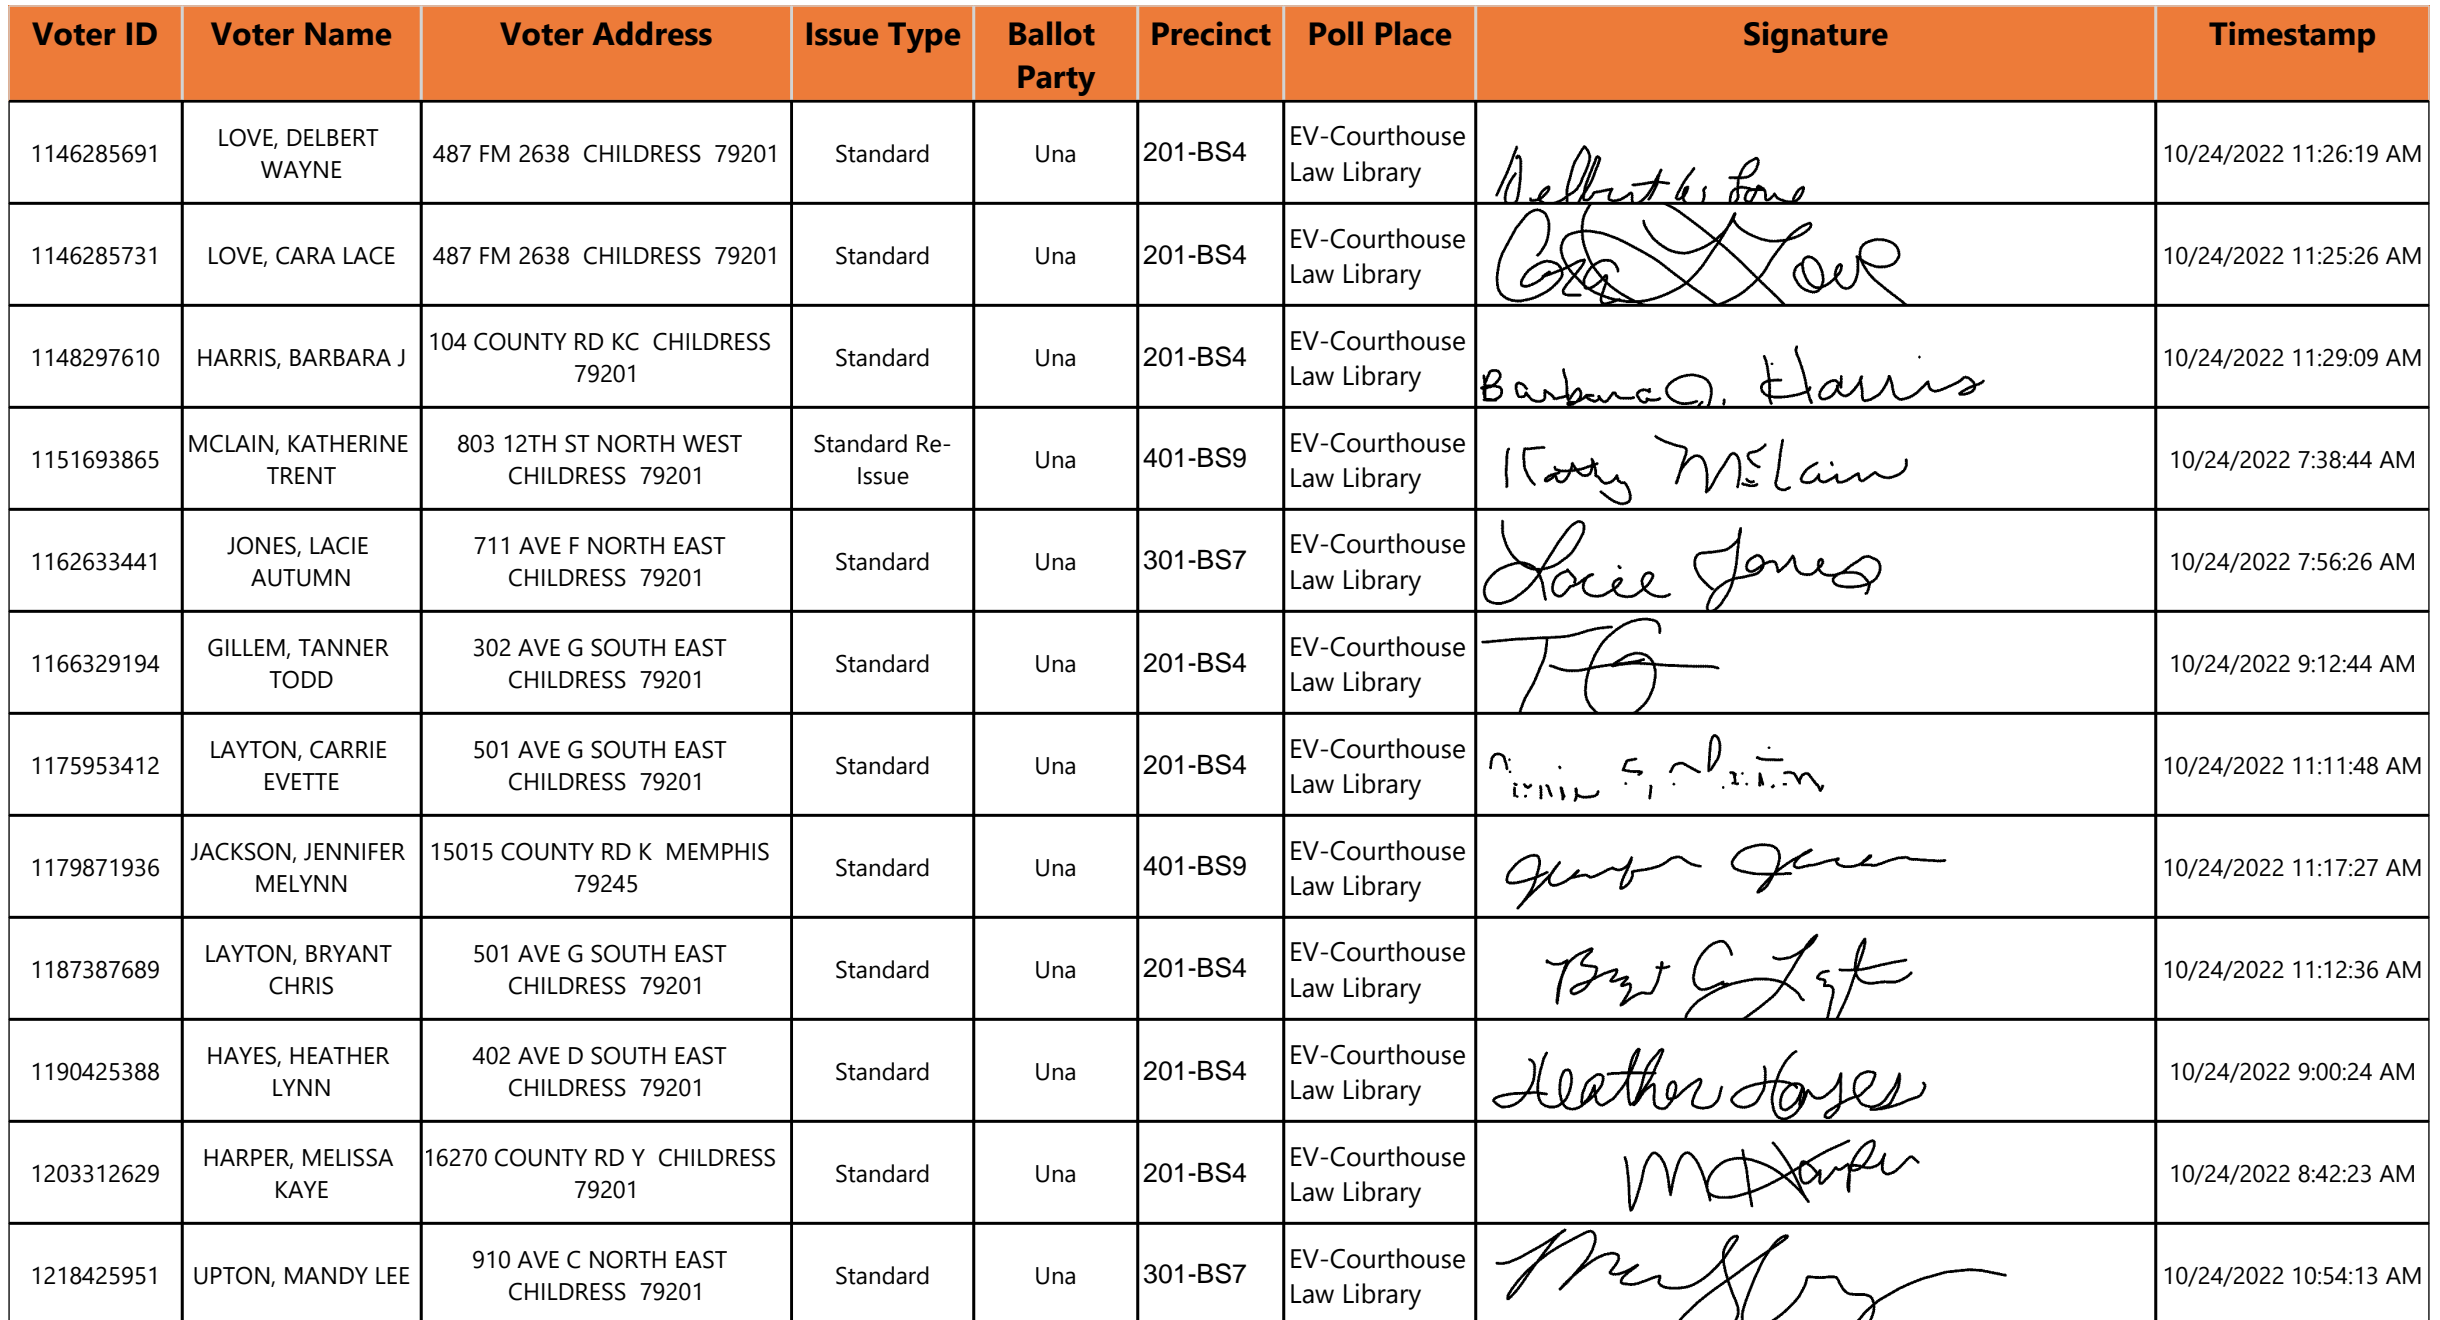 Voter ID Voter Name Voter Address Issue Type Ballot Party Precinct Poll Place Signature Timestamp
1146285691 LOVE, DELBERT WAYNE 487 FM 2638 CHILDRESS 79201 Standard Una 201-BS4 EV-Courthouse Law Library Delbert W Love 10/24/2022 11:26:19 AM
1146285731 LOVE, CARA LACE 487 FM 2638 CHILDRESS 79201 Standard Una 201-BS4 EV-Courthouse Law Library Cara Love 10/24/2022 11:25:26 AM
1148297610 HARRIS, BARBARA J 104 COUNTY RD KC CHILDRESS 79201 Standard Una 201-BS4 EV-Courthouse Law Library Barbara J. Harris 10/24/2022 11:29:09 AM
1151693865 MCLAIN, KATHERINE TRENT 803 12TH ST NORTH WEST CHILDRESS 79201 Standard Re-Issue Una 401-BS9 EV-Courthouse Law Library Kathy McLain 10/24/2022 7:38:44 AM
1162633441 JONES, LACIE AUTUMN 711 AVE F NORTH EAST CHILDRESS 79201 Standard Una 301-BS7 EV-Courthouse Law Library Lacie Jones 10/24/2022 7:56:26 AM
1166329194 GILLEM, TANNER TODD 302 AVE G SOUTH EAST CHILDRESS 79201 Standard Una 201-BS4 EV-Courthouse Law Library T G 10/24/2022 9:12:44 AM
1175953412 LAYTON, CARRIE EVETTE 501 AVE G SOUTH EAST CHILDRESS 79201 Standard Una 201-BS4 EV-Courthouse Law Library 10/24/2022 11:11:48 AM
1179871936 JACKSON, JENNIFER MELYNN 15015 COUNTY RD K MEMPHIS 79245 Standard Una 401-BS9 EV-Courthouse Law Library 10/24/2022 11:17:27 AM
1187387689 LAYTON, BRYANT CHRIS 501 AVE G SOUTH EAST CHILDRESS 79201 Standard Una 201-BS4 EV-Courthouse Law Library 10/24/2022 11:12:36 AM
1190425388 HAYES, HEATHER LYNN 402 AVE D SOUTH EAST CHILDRESS 79201 Standard Una 201-BS4 EV-Courthouse Law Library Heather Hayes 10/24/2022 9:00:24 AM
1203312629 HARPER, MELISSA KAYE 16270 COUNTY RD Y CHILDRESS 79201 Standard Una 201-BS4 EV-Courthouse Law Library M Harper 10/24/2022 8:42:23 AM
1218425951 UPTON, MANDY LEE 910 AVE C NORTH EAST CHILDRESS 79201 Standard Una 301-BS7 EV-Courthouse Law Library 10/24/2022 10:54:13 AM